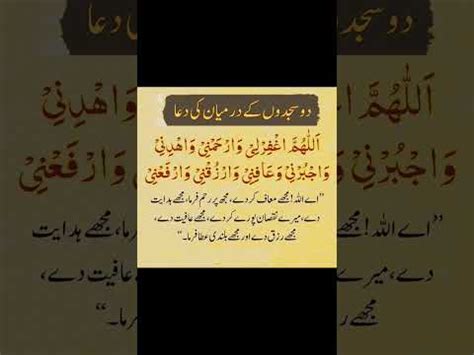 دو سجدوں کے درمیان کی دعا
اَللّٰهُمَّ اغْفِرْلِيْ وَارْحَمْنِيْ وَاهْدِنِيْ
وَاجْبُرْنِيْ وَعَافِنِيْ وَارْزُقْنِيْ وَارْفَعْنِيْ
”اے اللہ! مجھے معاف کر دے، مجھ پر رحم فرما، مجھے ہدایت
دے، میرے نقصان پورے کر دے، مجھے عافیت دے،
مجھے رزق دے اور مجھے بلندی عطا فرما۔“